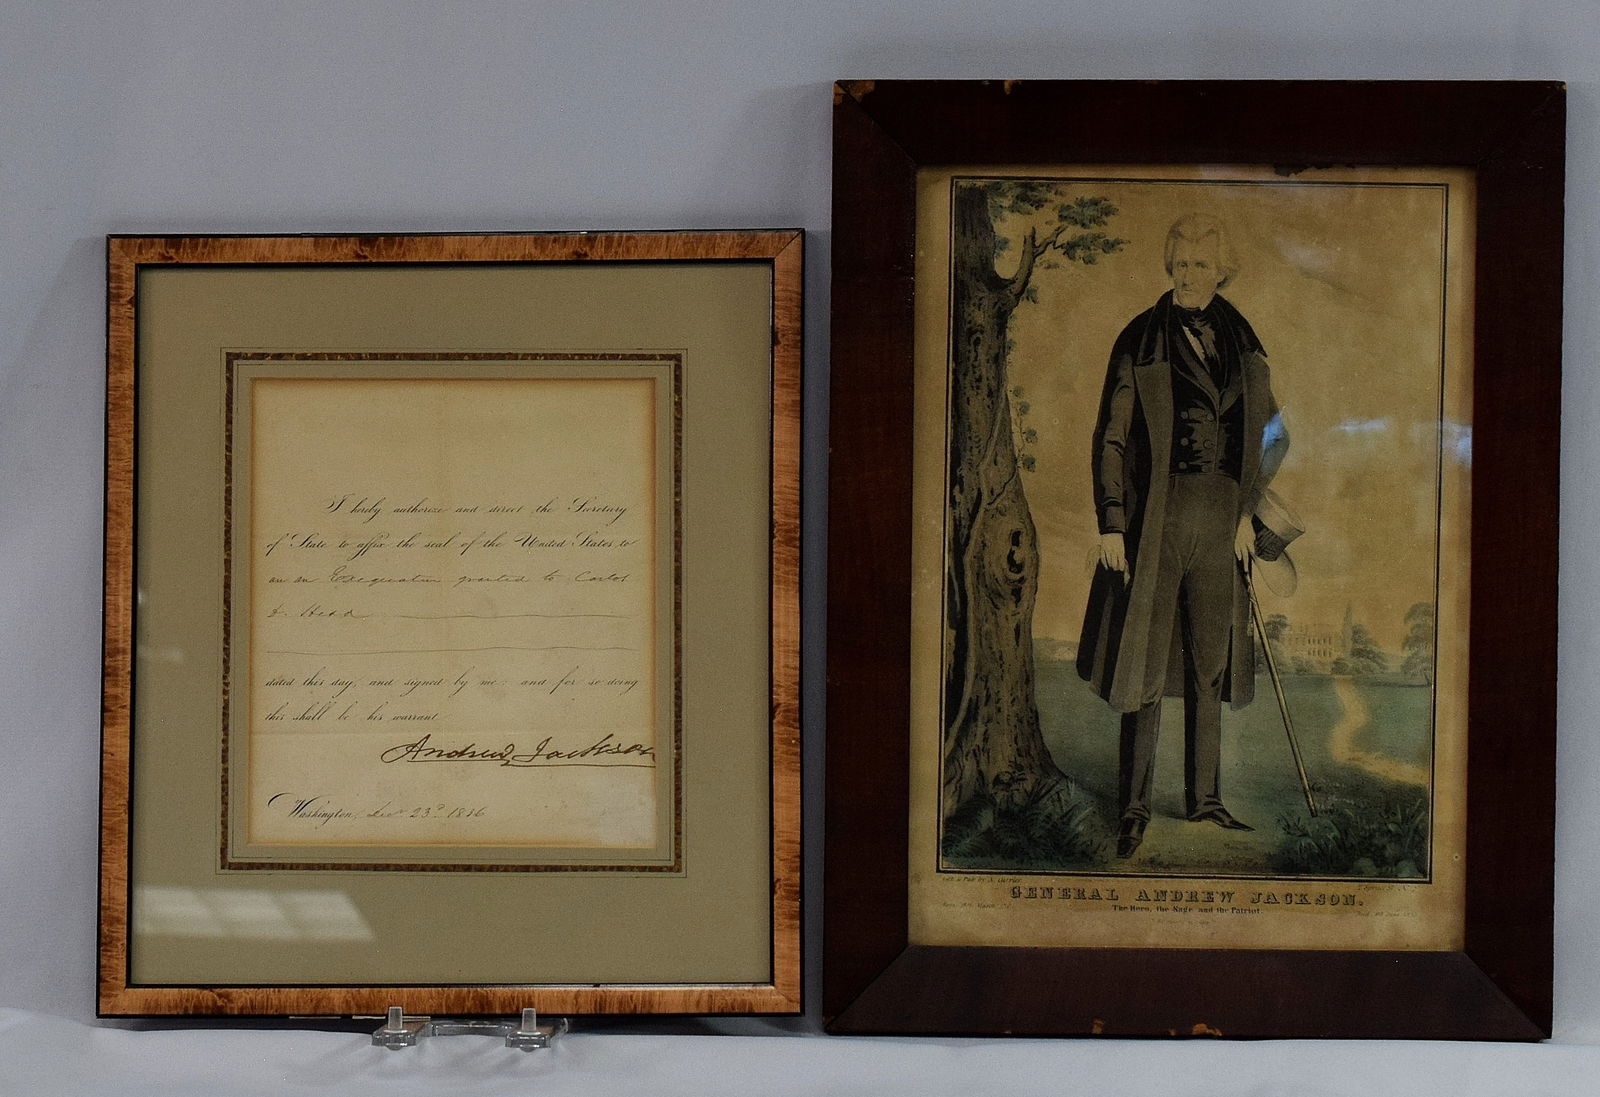 I hereby authorize and direct the Secretary
of State to affix the seal of the United States to
an an Exequatur granted to Carlos
dated this day, and signed by me: and for so doing
this shall be his warrant
Andrew Jackson
Washington, 23d 1836
Lith. & Pub. by N. Currier
GENERAL ANDREW JACKSON.
The Hero, the Sage and the Patriot.